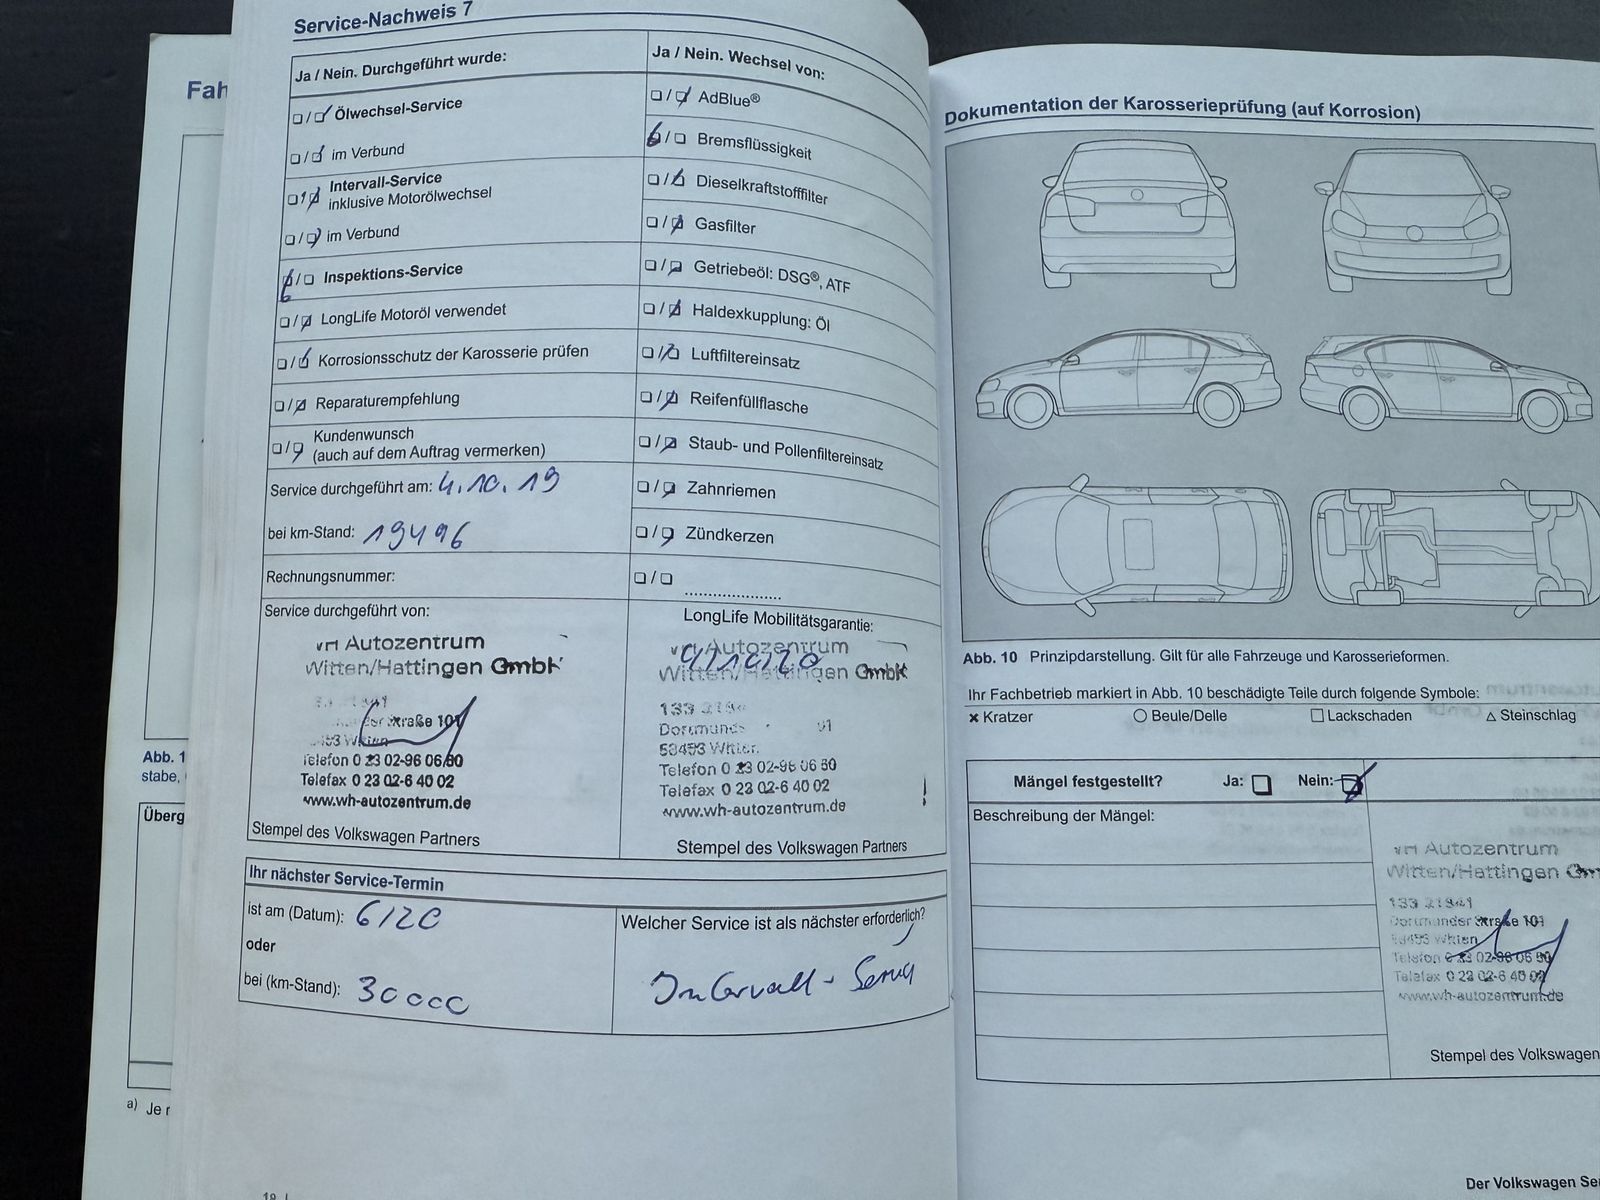 Fah
Abb. 1
stabe,
Überg
a) Je r
Service-Nachweis 7
Ja / Nein. Durchgeführt wurde:
Ölwechsel-Service
im Verbund
Intervall-Service
inklusive Motorölwechsel
im Verbund
Inspektions-Service
LongLife Motoröl verwendet
Korrosionsschutz der Karosserie prüfen
Reparaturempfehlung
Kundenwunsch
(auch auf dem Auftrag vermerken)
Service durchgeführt am: 4.10.19
bei km-Stand: 19496
Rechnungsnummer:
Service durchgeführt von:
Autozentrum
Witten/Hattingen GmbH
Straße 101
Telefon 0 23 02-96 06 80
Telefax 0 23 02-6 40 02
www.wh-autozentrum.de
Stempel des Volkswagen Partners
Ja / Nein. Wechsel von:
AdBlue®
Bremsflüssigkeit
Dieselkraftstofffilter
Gasfilter
Getriebeöl: DSG®, ATF
Haldexkupplung: Öl
Luftfiltereinsatz
Reifenfüllflasche
Staub- und Pollenfiltereinsatz
Zahnriemen
Zündkerzen
LongLife Mobilitätsgarantie:
Autozentrum
Witten/Hattingen GmbH
Telefon 0 23 02-96 06 80
Telefax 0 23 02-6 40 02
www.wh-autozentrum.de
Stempel des Volkswagen Partners
Ihr nächster Service-Termin
ist am (Datum): 6/20
oder
bei (km-Stand): 30000
Welcher Service ist als nächster erforderlich?
Intervall - Service
Dokumentation der Karosserieprüfung (auf Korrosion)
Abb. 10 Prinzipdarstellung. Gilt für alle Fahrzeuge und Karosserieformen.
Ihr Fachbetrieb markiert in Abb. 10 beschädigte Teile durch folgende Symbole:
Kratzer Beule/Delle Lackschaden Steinschlag
Mängel festgestellt? Ja: Nein:
Beschreibung der Mängel:
Autozentrum
Witten/Hattingen
133 21941
Dortmunder Straße 101
Witten
Telefon 0 23 02-96 06 80
Telefax 0 23 02-6 40 02
www.wh-autozentrum.de
Stempel des Volkswagen
Der Volkswagen Se